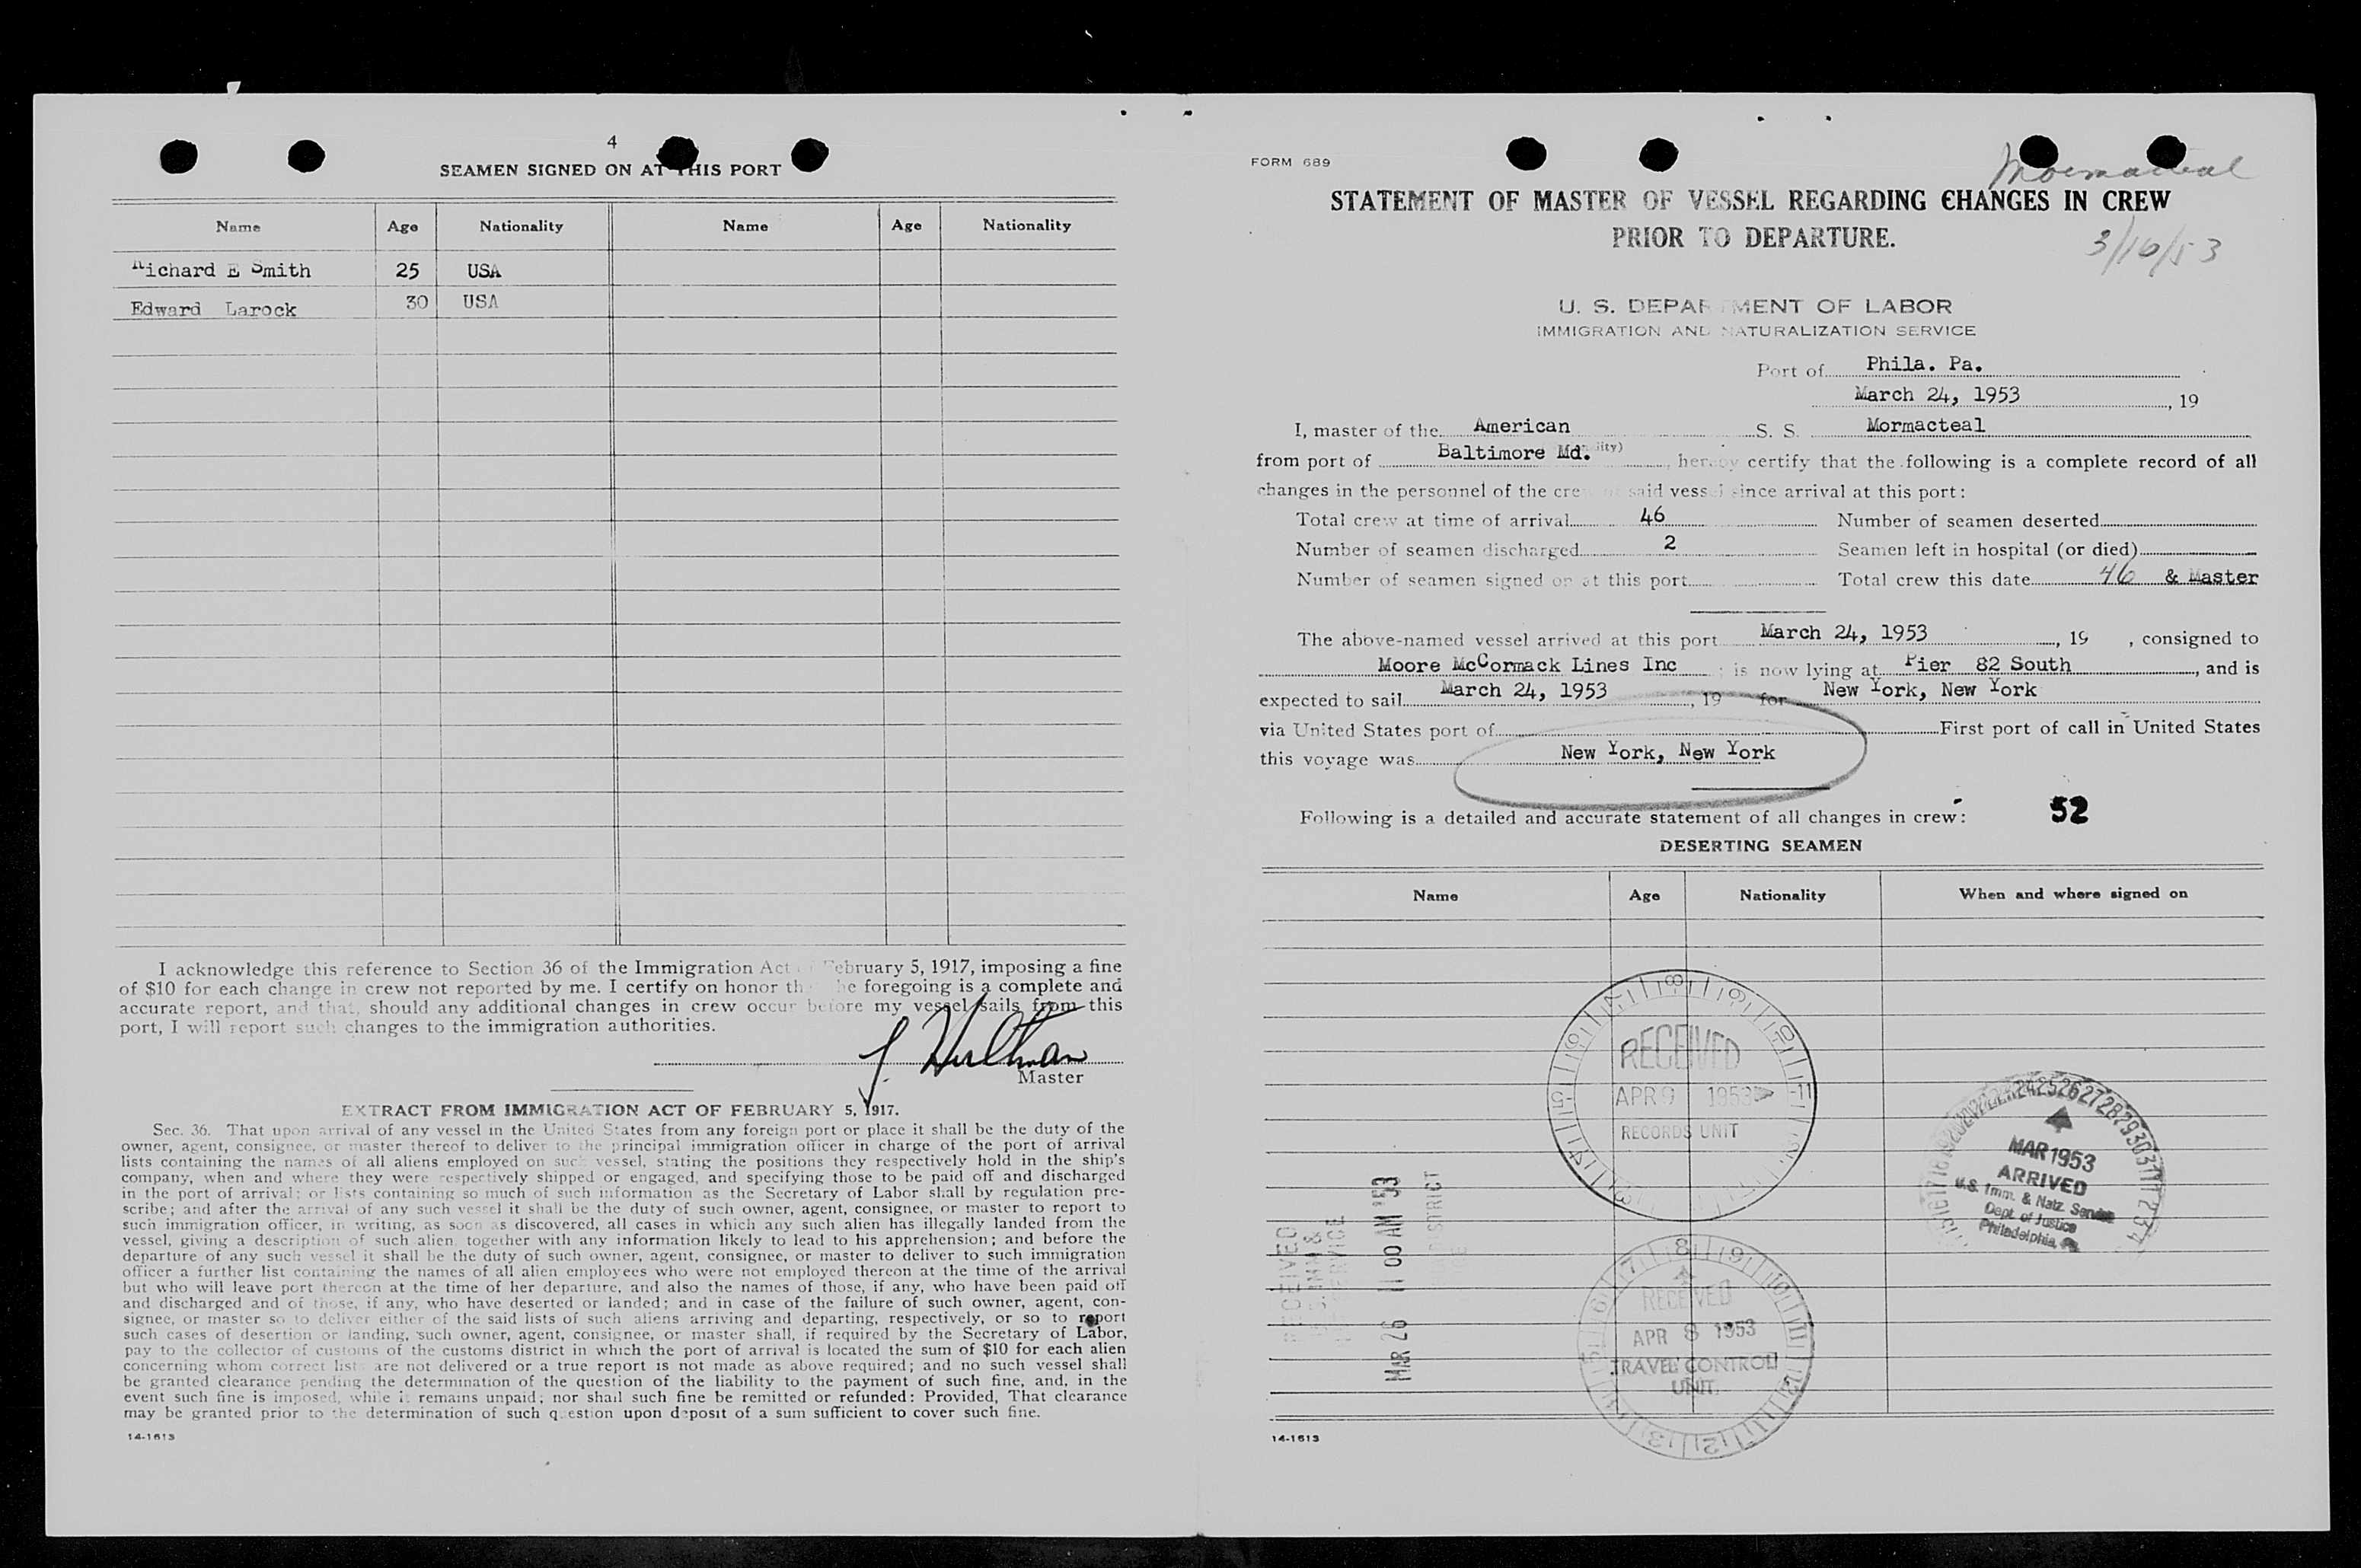 4
SEAMEN SIGNED ON AT THIS PORT
Name Age Nationality Name Age Nationality
Richard E Smith 25 USA
Edward Larock 30 USA
I acknowledge this reference to Section 36 of the Immigration Act of February 5, 1917, imposing a fine
of $10 for each change in crew not reported by me. I certify on honor the foregoing is a complete and
accurate report, and that, should any additional changes in crew occur before my vessel sails from this
port, I will report such changes to the immigration authorities.
J. Hultman
Master
EXTRACT FROM IMMIGRATION ACT OF FEBRUARY 5, 1917.
Sec. 36. That upon arrival of any vessel in the United States from any foreign port or place it shall be the duty of the
owner, agent, consignee, or master thereof to deliver to the principal immigration officer in charge of the port of arrival
lists containing the names of all aliens employed on such vessel, stating the positions they respectively hold in the ship's
company, when and where they were respectively shipped or engaged, and specifying those to be paid off and discharged
in the port of arrival; or lists containing so much of such information as the Secretary of Labor shall by regulation pre-
scribe; and after the arrival of any such vessel it shall be the duty of such owner, agent, consignee, or master to report to
such immigration officer, in writing, as soon as discovered, all cases in which any such alien has illegally landed from the
vessel, giving a description of such alien, together with any information likely to lead to his apprehension; and before the
departure of any such vessel it shall be the duty of such owner, agent, consignee, or master to deliver to such immigration
officer a further list containing the names of all alien employees who were not employed thereon at the time of the arrival
but who will leave port thereon at the time of her departure, and also the names of those, if any, who have been paid off
and discharged and of those, if any, who have deserted or landed; and in case of the failure of such owner, agent, con-
signee, or master so to deliver either of the said lists of such aliens arriving and departing, respectively, or so to report
such cases of desertion or landing, such owner, agent, consignee, or master shall, if required by the Secretary of Labor,
pay to the collector of customs of the customs district in which the port of arrival is located the sum of $10 for each alien
concerning whom correct lists are not delivered or a true report is not made as above required; and no such vessel shall
be granted clearance pending the determination of the question of the liability to the payment of such fine, and, in the
event such fine is imposed, while it remains unpaid; nor shall such fine be remitted or refunded: Provided, That clearance
may be granted prior to the determination of such question upon deposit of a sum sufficient to cover such fine.
14-1613
FORM 689
Mormacteal
STATEMENT OF MASTER OF VESSEL REGARDING CHANGES IN CREW
PRIOR TO DEPARTURE.
3/16/53
U. S. DEPARTMENT OF LABOR
IMMIGRATION AND NATURALIZATION SERVICE
Port of Phila. Pa.
March 24, 1953, 19
I, master of the American S. S. Mormacteal
from port of Baltimore Md., hereby certify that the following is a complete record of all
changes in the personnel of the crew of said vessel since arrival at this port:
Total crew at time of arrival 46 Number of seamen deserted
Number of seamen discharged 2 Seamen left in hospital (or died)
Number of seamen signed on at this port Total crew this date 46 & Master
The above-named vessel arrived at this port March 24, 1953, 19 , consigned to
Moore McCormack Lines Inc ; is now lying at Pier 82 South, and is
expected to sail March 24, 1953, 19 for New York, New York
via United States port of First port of call in United States
this voyage was New York, New York
Following is a detailed and accurate statement of all changes in crew: 52
DESERTING SEAMEN
Name Age Nationality When and where signed on
RECEIVED
APR 9 1953
RECORDS UNIT
MAR 1953
ARRIVED
U.S. Imm. & Natz. Service
Dept. of Justice
Philadelphia, Pa.
RECEIVED
MAR 26 11 00 AM '53
DISTRICT
RECEIVED
APR 8 1953
TRAVEL CONTROL
UNIT
14-1613